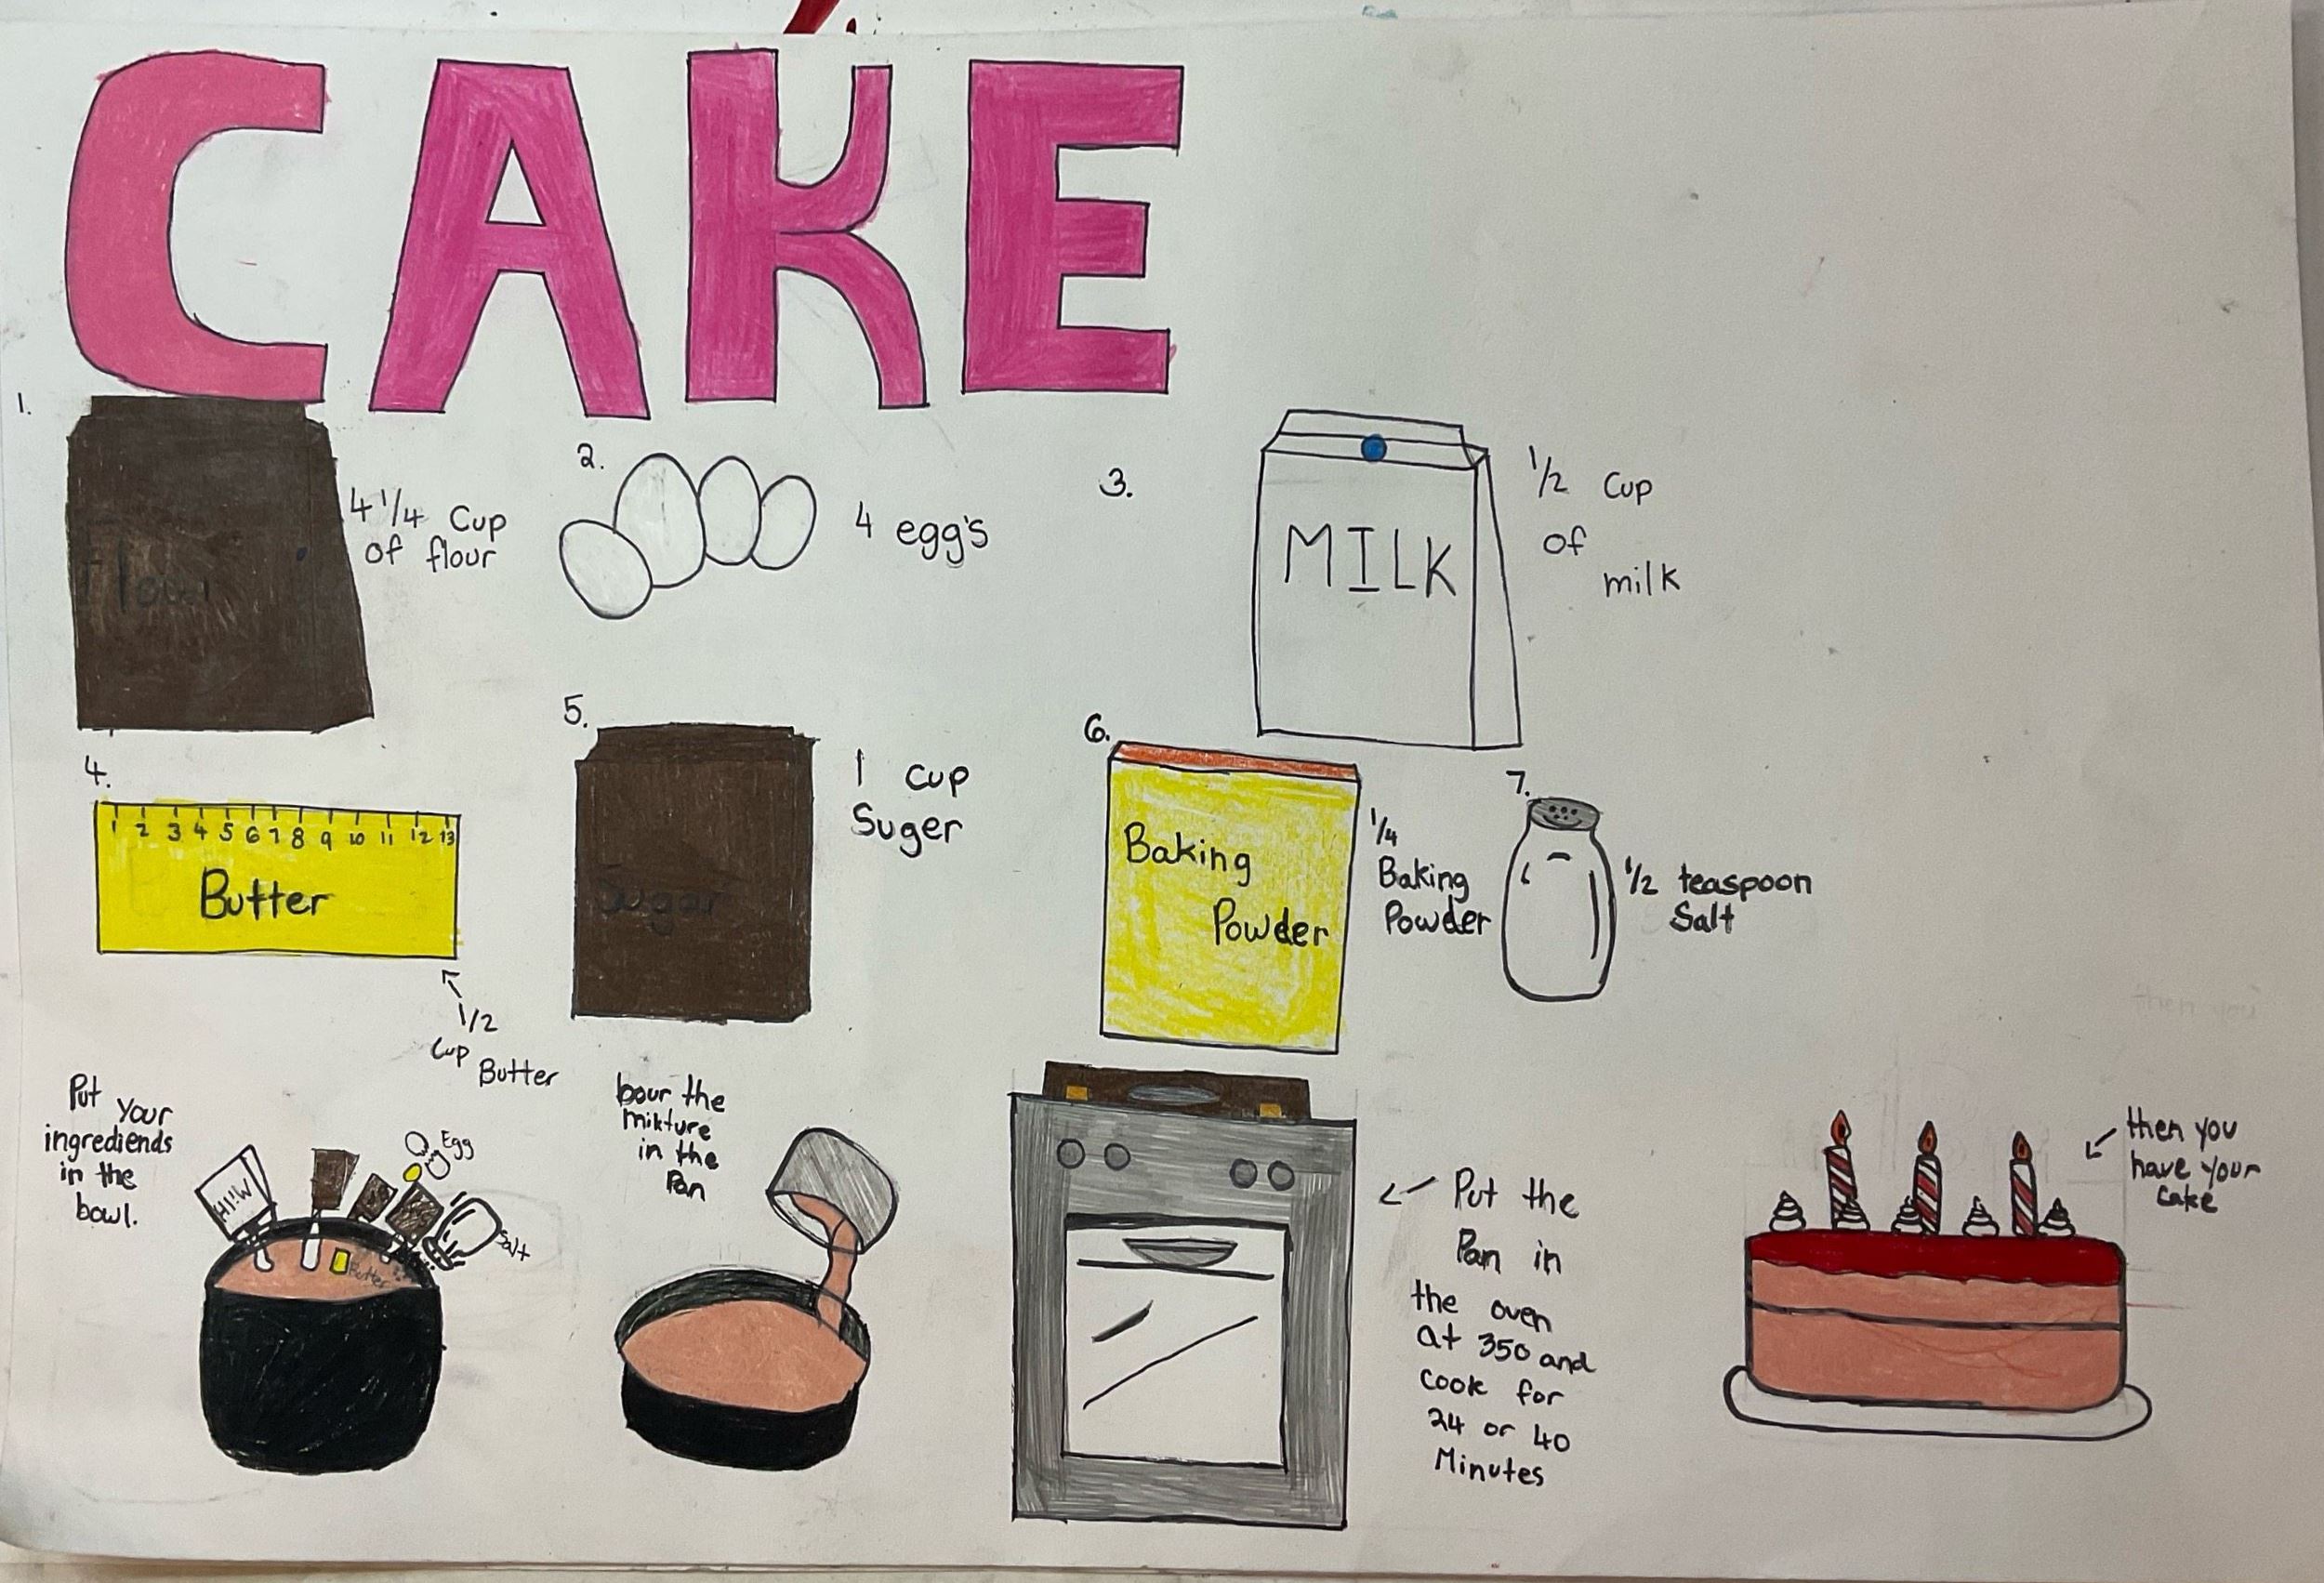 CAKE
1.
flour
4 1/4 Cup
of flour
2.
4 egg's
3.
MILK
1/2 Cup
of
milk
4.
1 2 3 4 5 6 7 8 9 10 11 12 13
Butter
1/2
Cup
Butter
5.
Sugar
1 cup
Suger
6.
Baking
Powder
1/4
Baking
Powder
7.
1/2 teaspoon
Salt
Put your
ingrediends
in the
bowl.
Egg
Butter
Salt
bour the
mikture
in the
Pan
Put the
Pan in
the oven
at 350 and
cook for
24 or 40
Minutes
then you
have your
cake